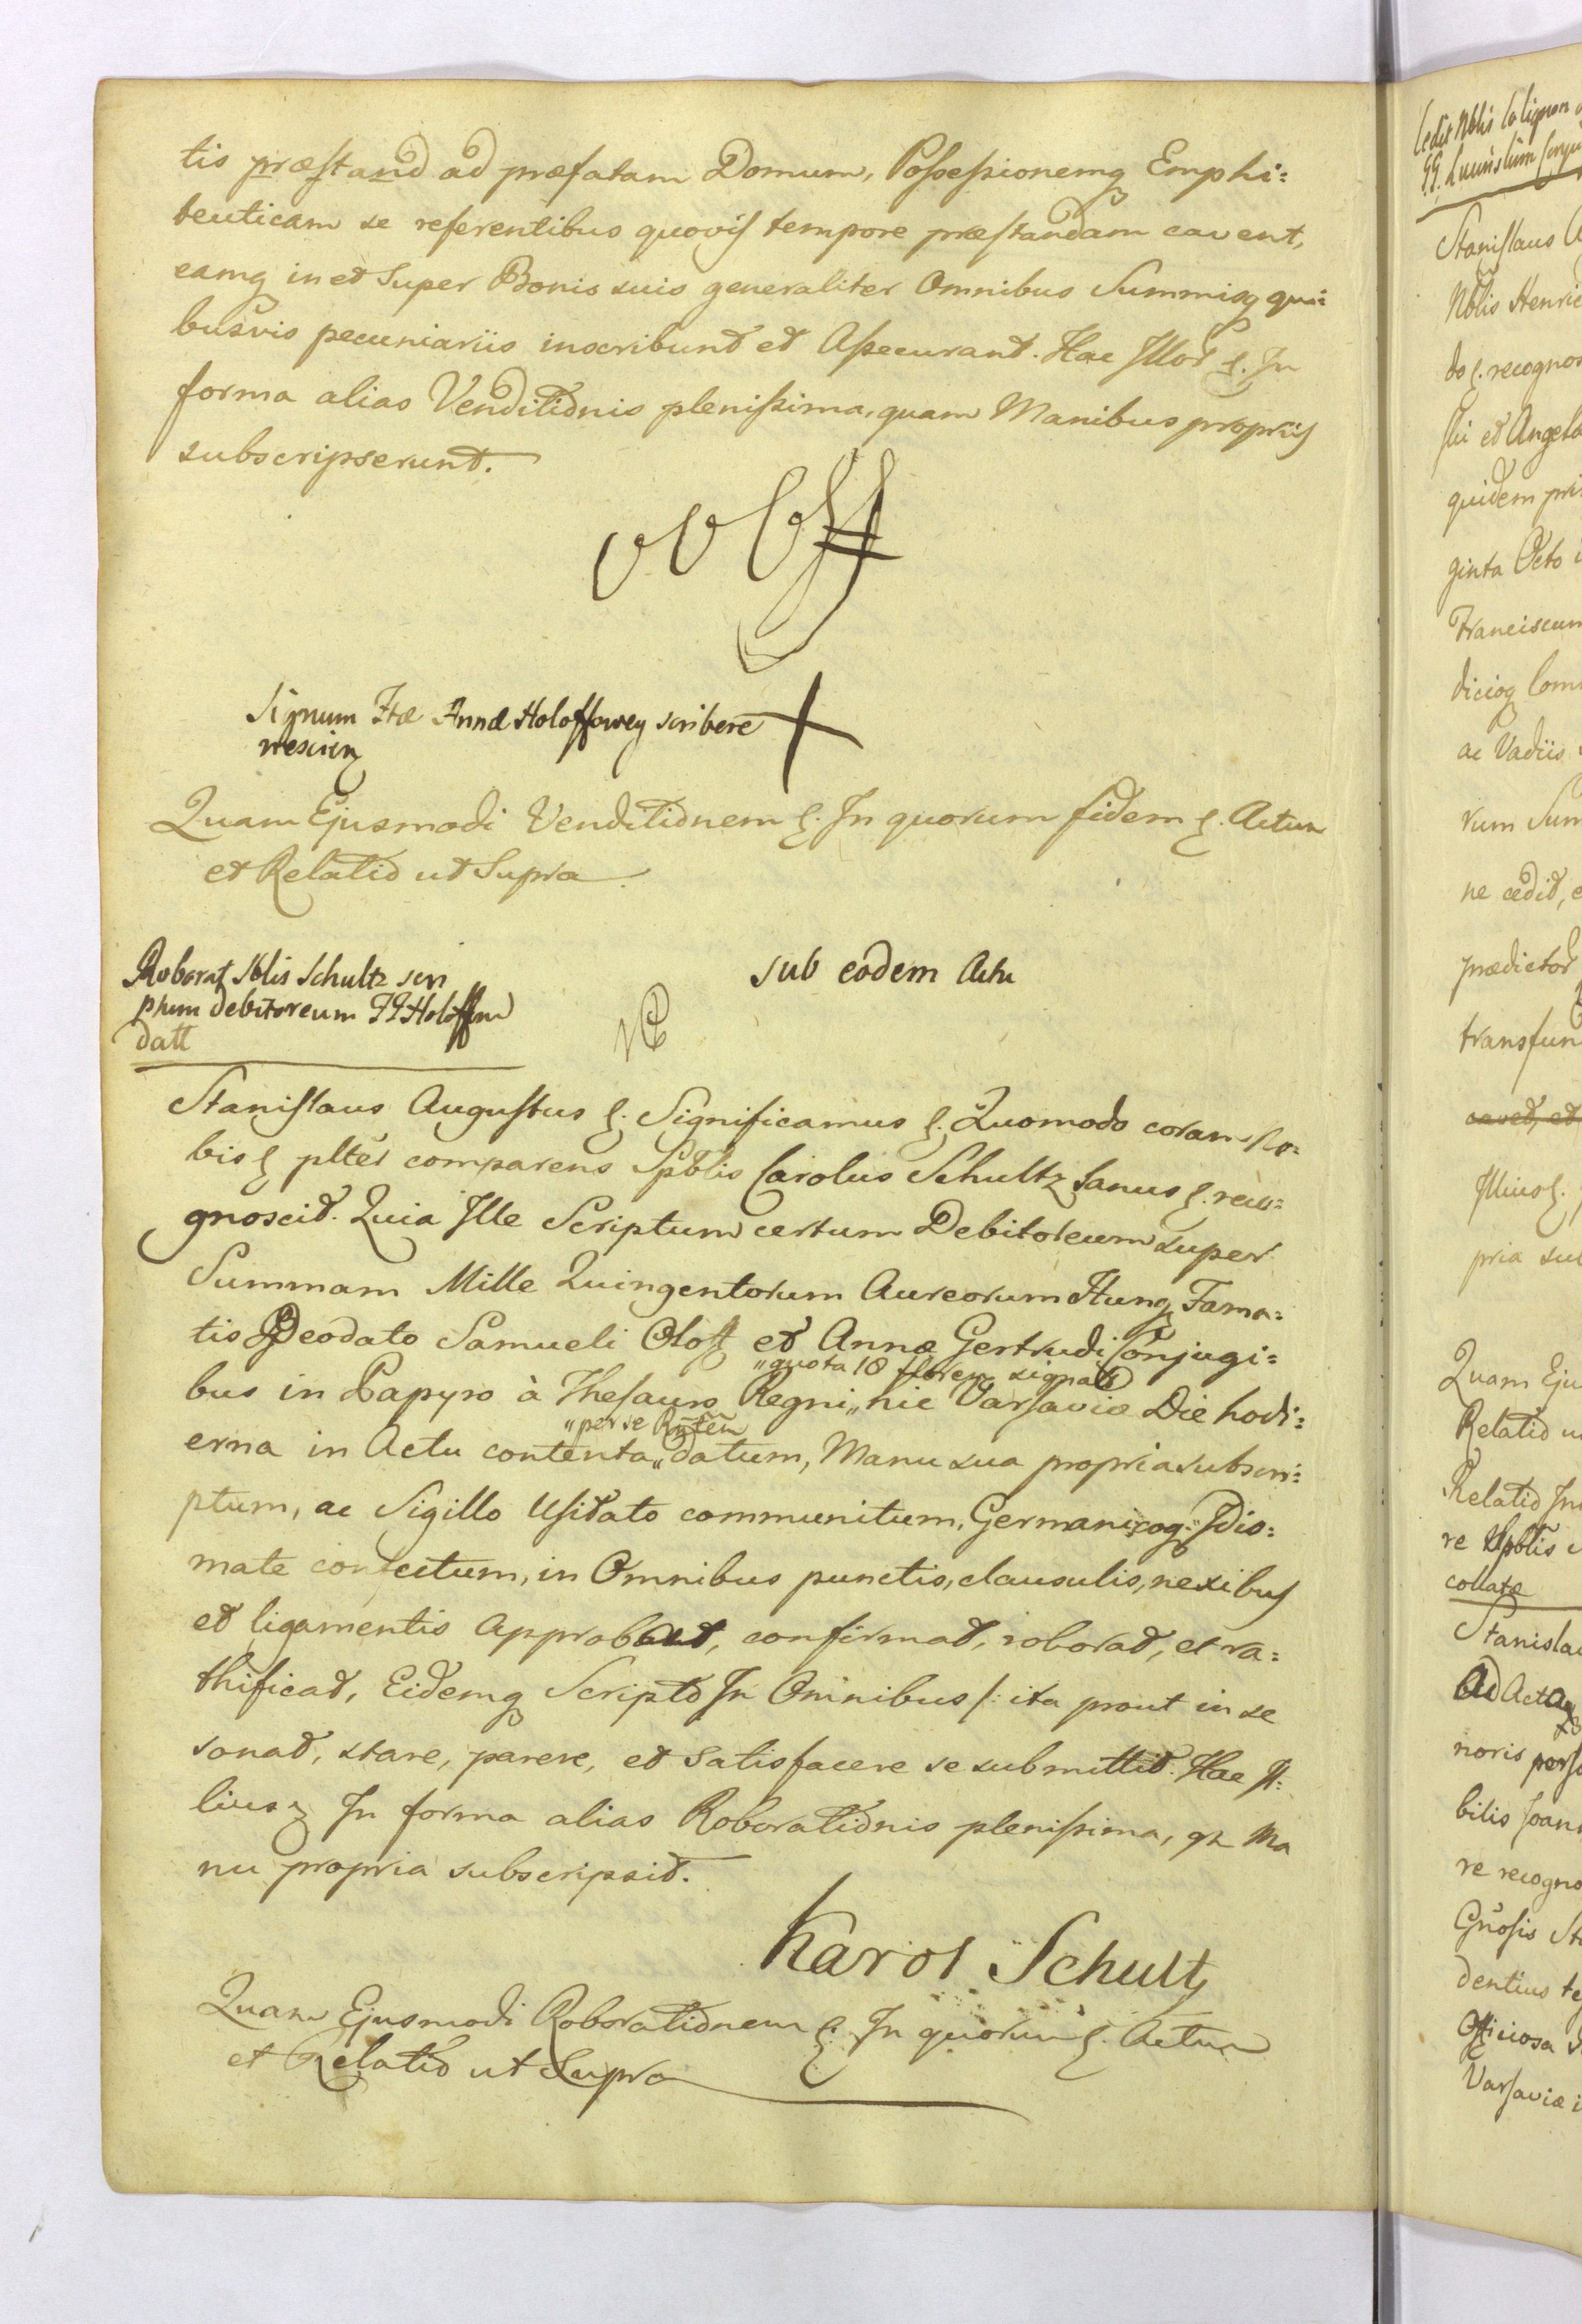 tis præstand ad præfatam Domum, Possessionemq Emphi=
teuticam se referentibus quovis tempore præstandam cavent,
eamq in et Super Bonis suis generaliter Omnibus Summisq qui=
busvis pecuniariis inscribunt et Assecurant. Hac Illor . In
forma alias Venditionis plenissima, quam Manibus propriis
subscripserunt.
Signum Annæ Holoffowey scribere
nescien
Quam Ejusmodi Venditionem . In quorum fidem . Actum
et Relatio ut Supra
Roborat Schultz scri
ptum debitoreum
datt
sub eodem Actu
Stanislaus Augustus . Significamus . Quomodo coram No=
bis plter comparens Spblis Carolus Schultz Sanus . reco=
gnoscit. Quia Ille Scriptum certum Debitoreum super
Summam Mille Quingentorum Aureorum Hung Fama=
tis Deodato Samueli Oloff et Annæ Gertrudi Conjugi=
"quota 18 floren signato
bus in Papyro à Thesauro Regni „ hic Varsaviæ Die hodi=
"per se
erna in Actu contenta „ datum, Manu sua propria subscri=
ptum, ac Sigillo Usitato communitum, Germanicoq: Idio=
mate confectum, in Omnibus punctis, clausulis, nexibus
et ligamentis Approbat, confirmat, roborat, et ra=
thificat, Eidemq Scripto In Omnibus /: ita prout in se
sonat, stare, parere, et Satisfacere se submittit. Hac Il=
lius In forma alias Roborationis plenissima, qm Ma
nu propria subscripsit.
Karol Schultz
Quam Ejusmodi Roborationem . In quorum . Actum
et Relatio ut Supra
Stanislaus
Nblis
recogno
et Angela
quidem
ginta Octo
Franciscum
ac Vadiis
rum Sum
ne cedit,
prædictor
transfun
pria
Quam Eju
Relatio
Relatio
re
collatæ
Stanisla
Ad Acta
noris
bilis Joan
re recogno
dentius
Officiosa
Varsaviæ